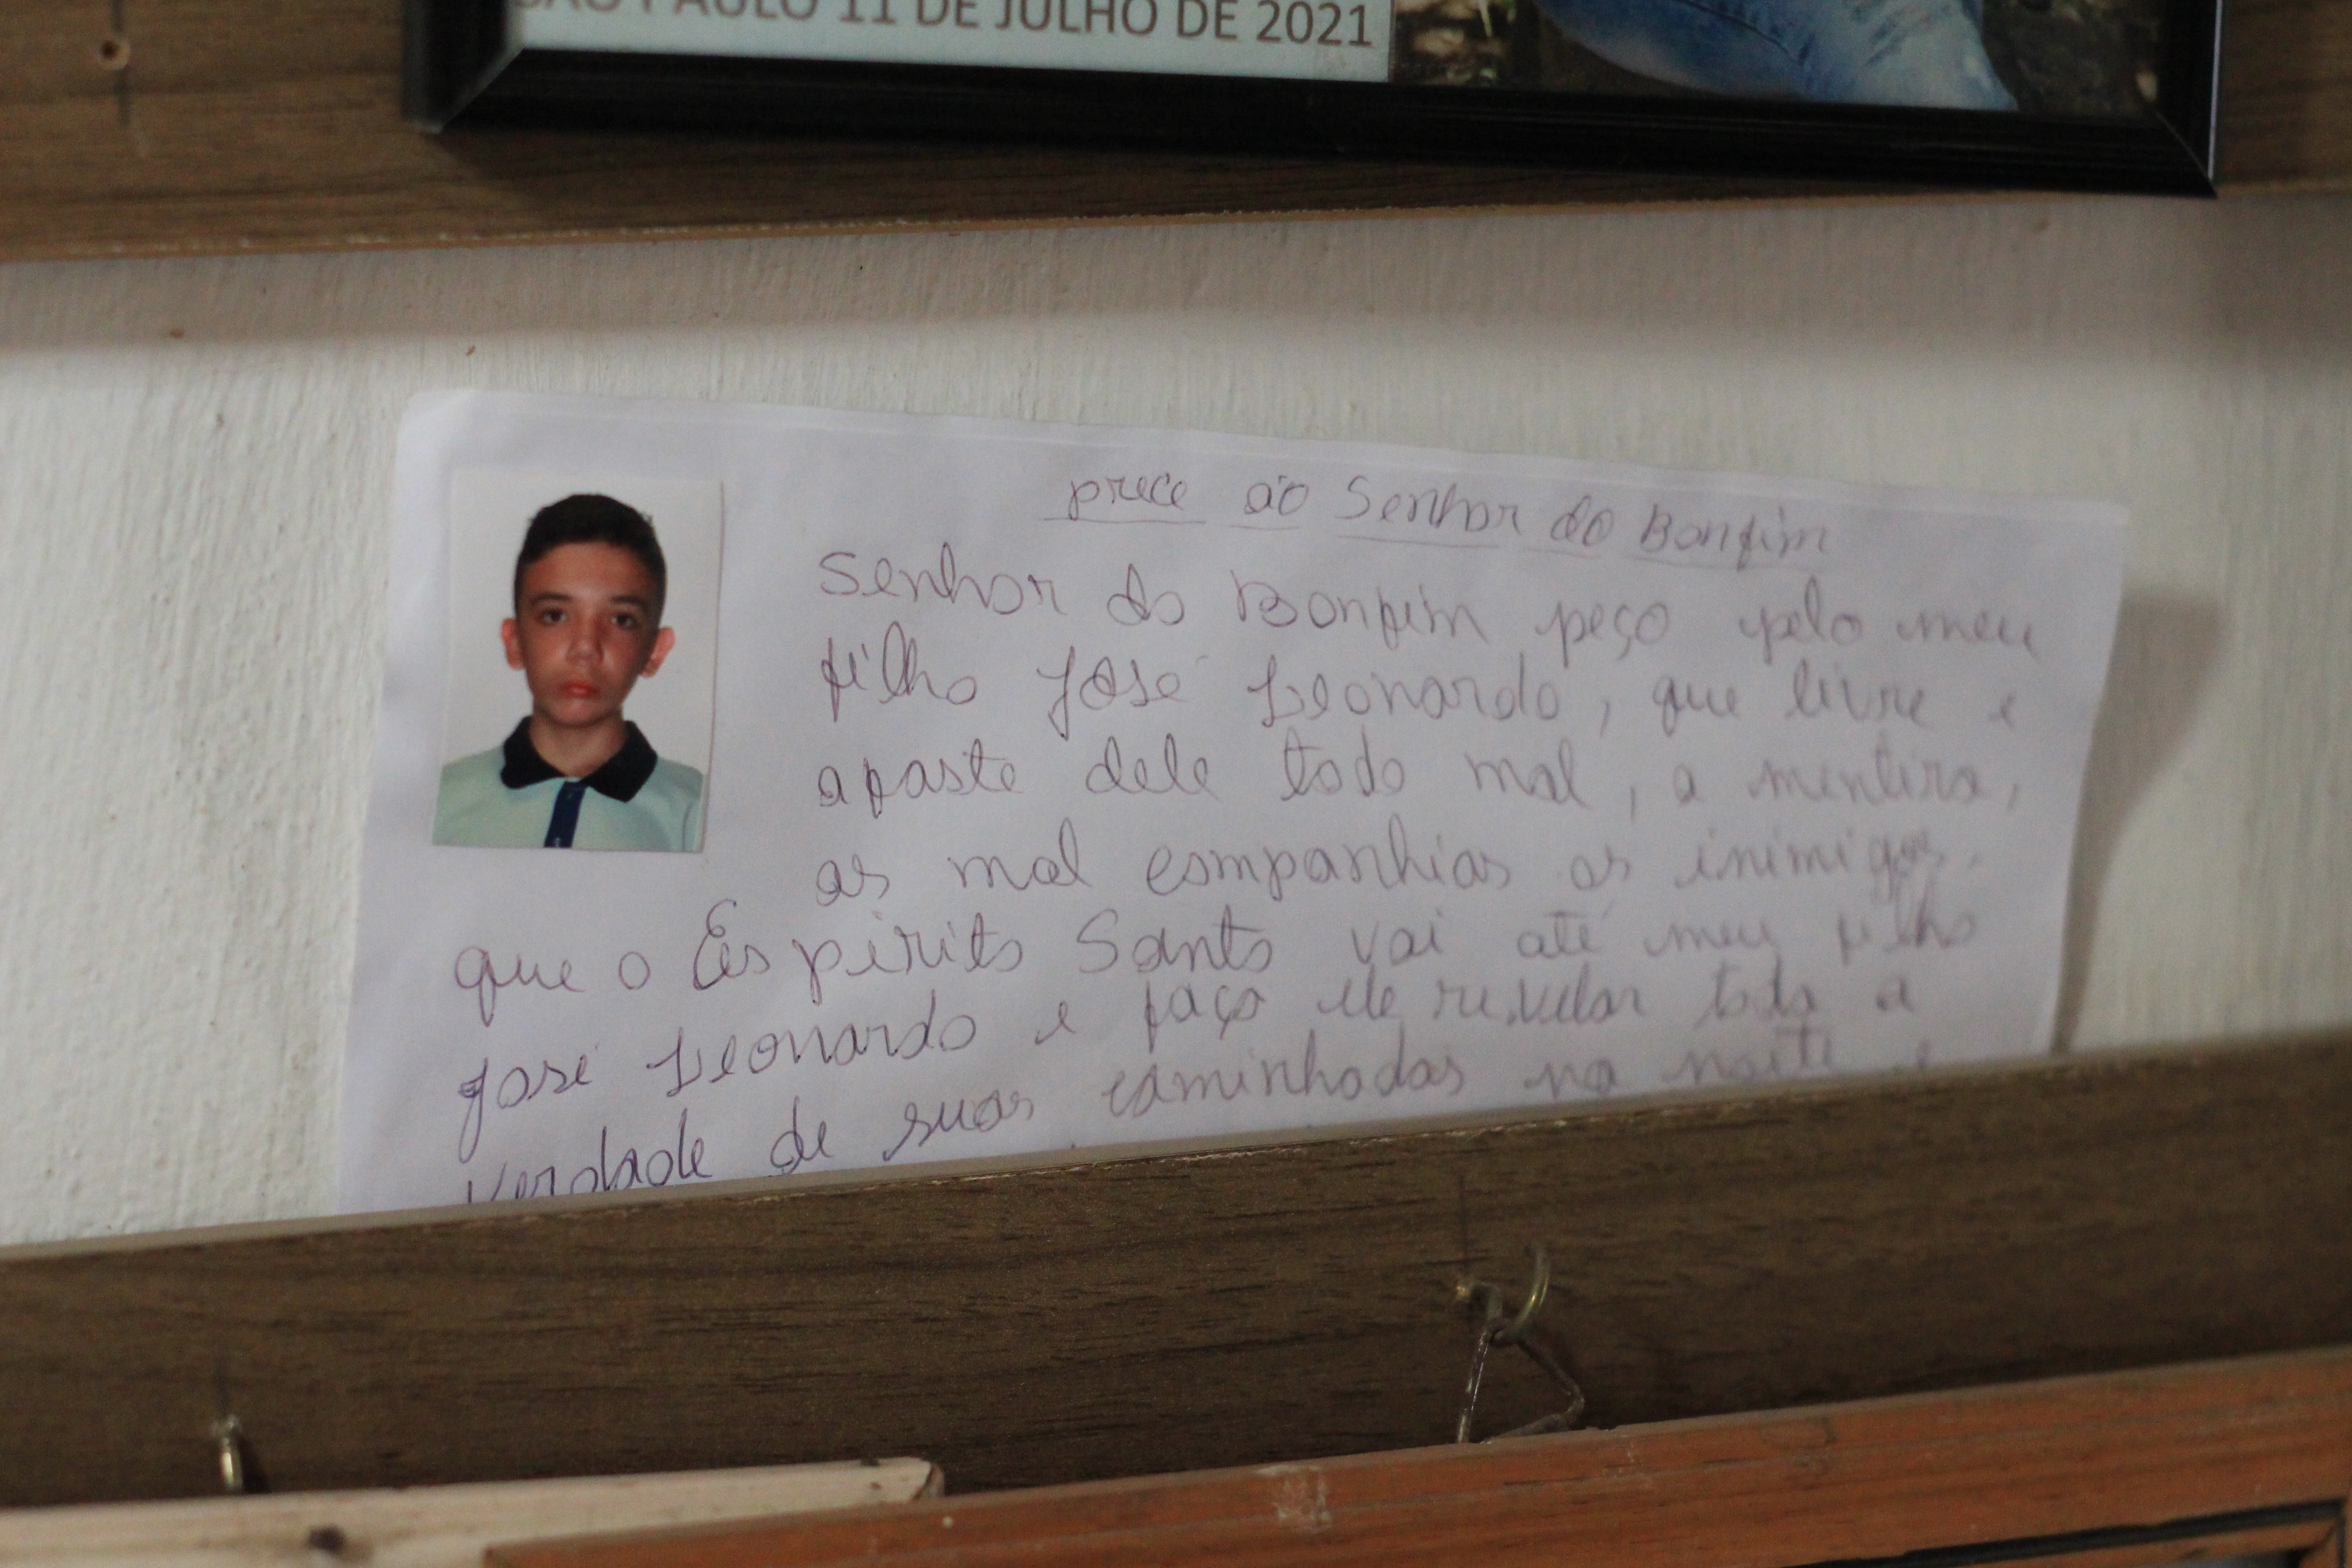 SÃO PAULO 11 DE JULHO DE 2021
prece ao Senhor do Bonfim
Senhor do Bonfim peço pelo meu
filho José Leonardo, que livre e
afaste dele todo mal, a mentira,
as mal companhias os inimigos.
que o Espirito Santo vai até meu filho
José Leonardo e faça ele revelar toda a
verdade de suas caminhadas na noite e